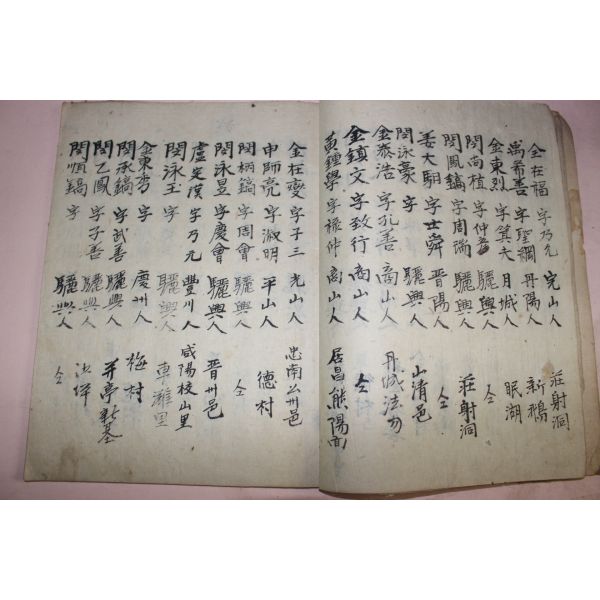 金在福 字乃允 完山人 莊射洞
禹希善 字聖綱 丹陽人 新鵝
金東烈 字箕夫 月城人 眠湖
閔尚植 字仲 驪興人 仝
閔鳳鎬 字周瑞 驪興人 莊射洞
姜大馹 字士舜 晋陽人 仝
閔泳豪 字 驪興人 山清邑
金泰浩 字孔善 商山人 丹城法勿
金鎮文 字致行 商山人 仝
黃鍾學 字祿仲 商山人 居昌熊陽面
金在燮 字子三 光山人 忠南公州邑
申師亮 字淑明 平山人 德村
閔柄鎬 字周會 驪興人 仝
閔泳昱 字慶會 驪興人 晋州邑
盧定漢 字乃允 豐川人 咸陽校山里
閔泳玉 字 驪興人 車灘里
金東秀 字 慶州人 梅村
閔承鎬 字武善 驪興人 井亭新基
閔乙鳳 字子善 驪興人
閔順鎬 字 驪興人 仝